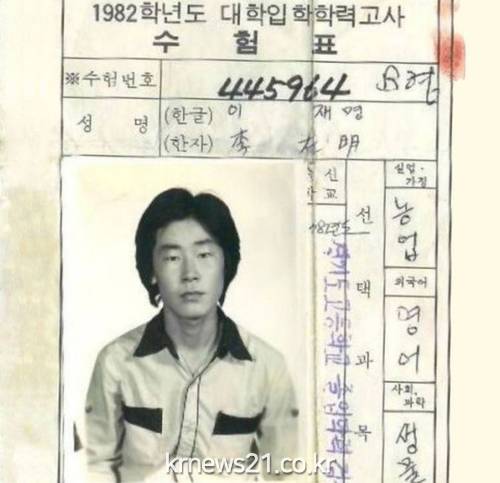 1982학년도 대학입학학력고사
수 험 표
※수험번호 445964 B형
성 명
(한글) 이 재 명
(한자) 李 在 明
선 택 과 목
실업·가정
농업
외국어
영어
사회,과학
생물
krnews21.co.kr